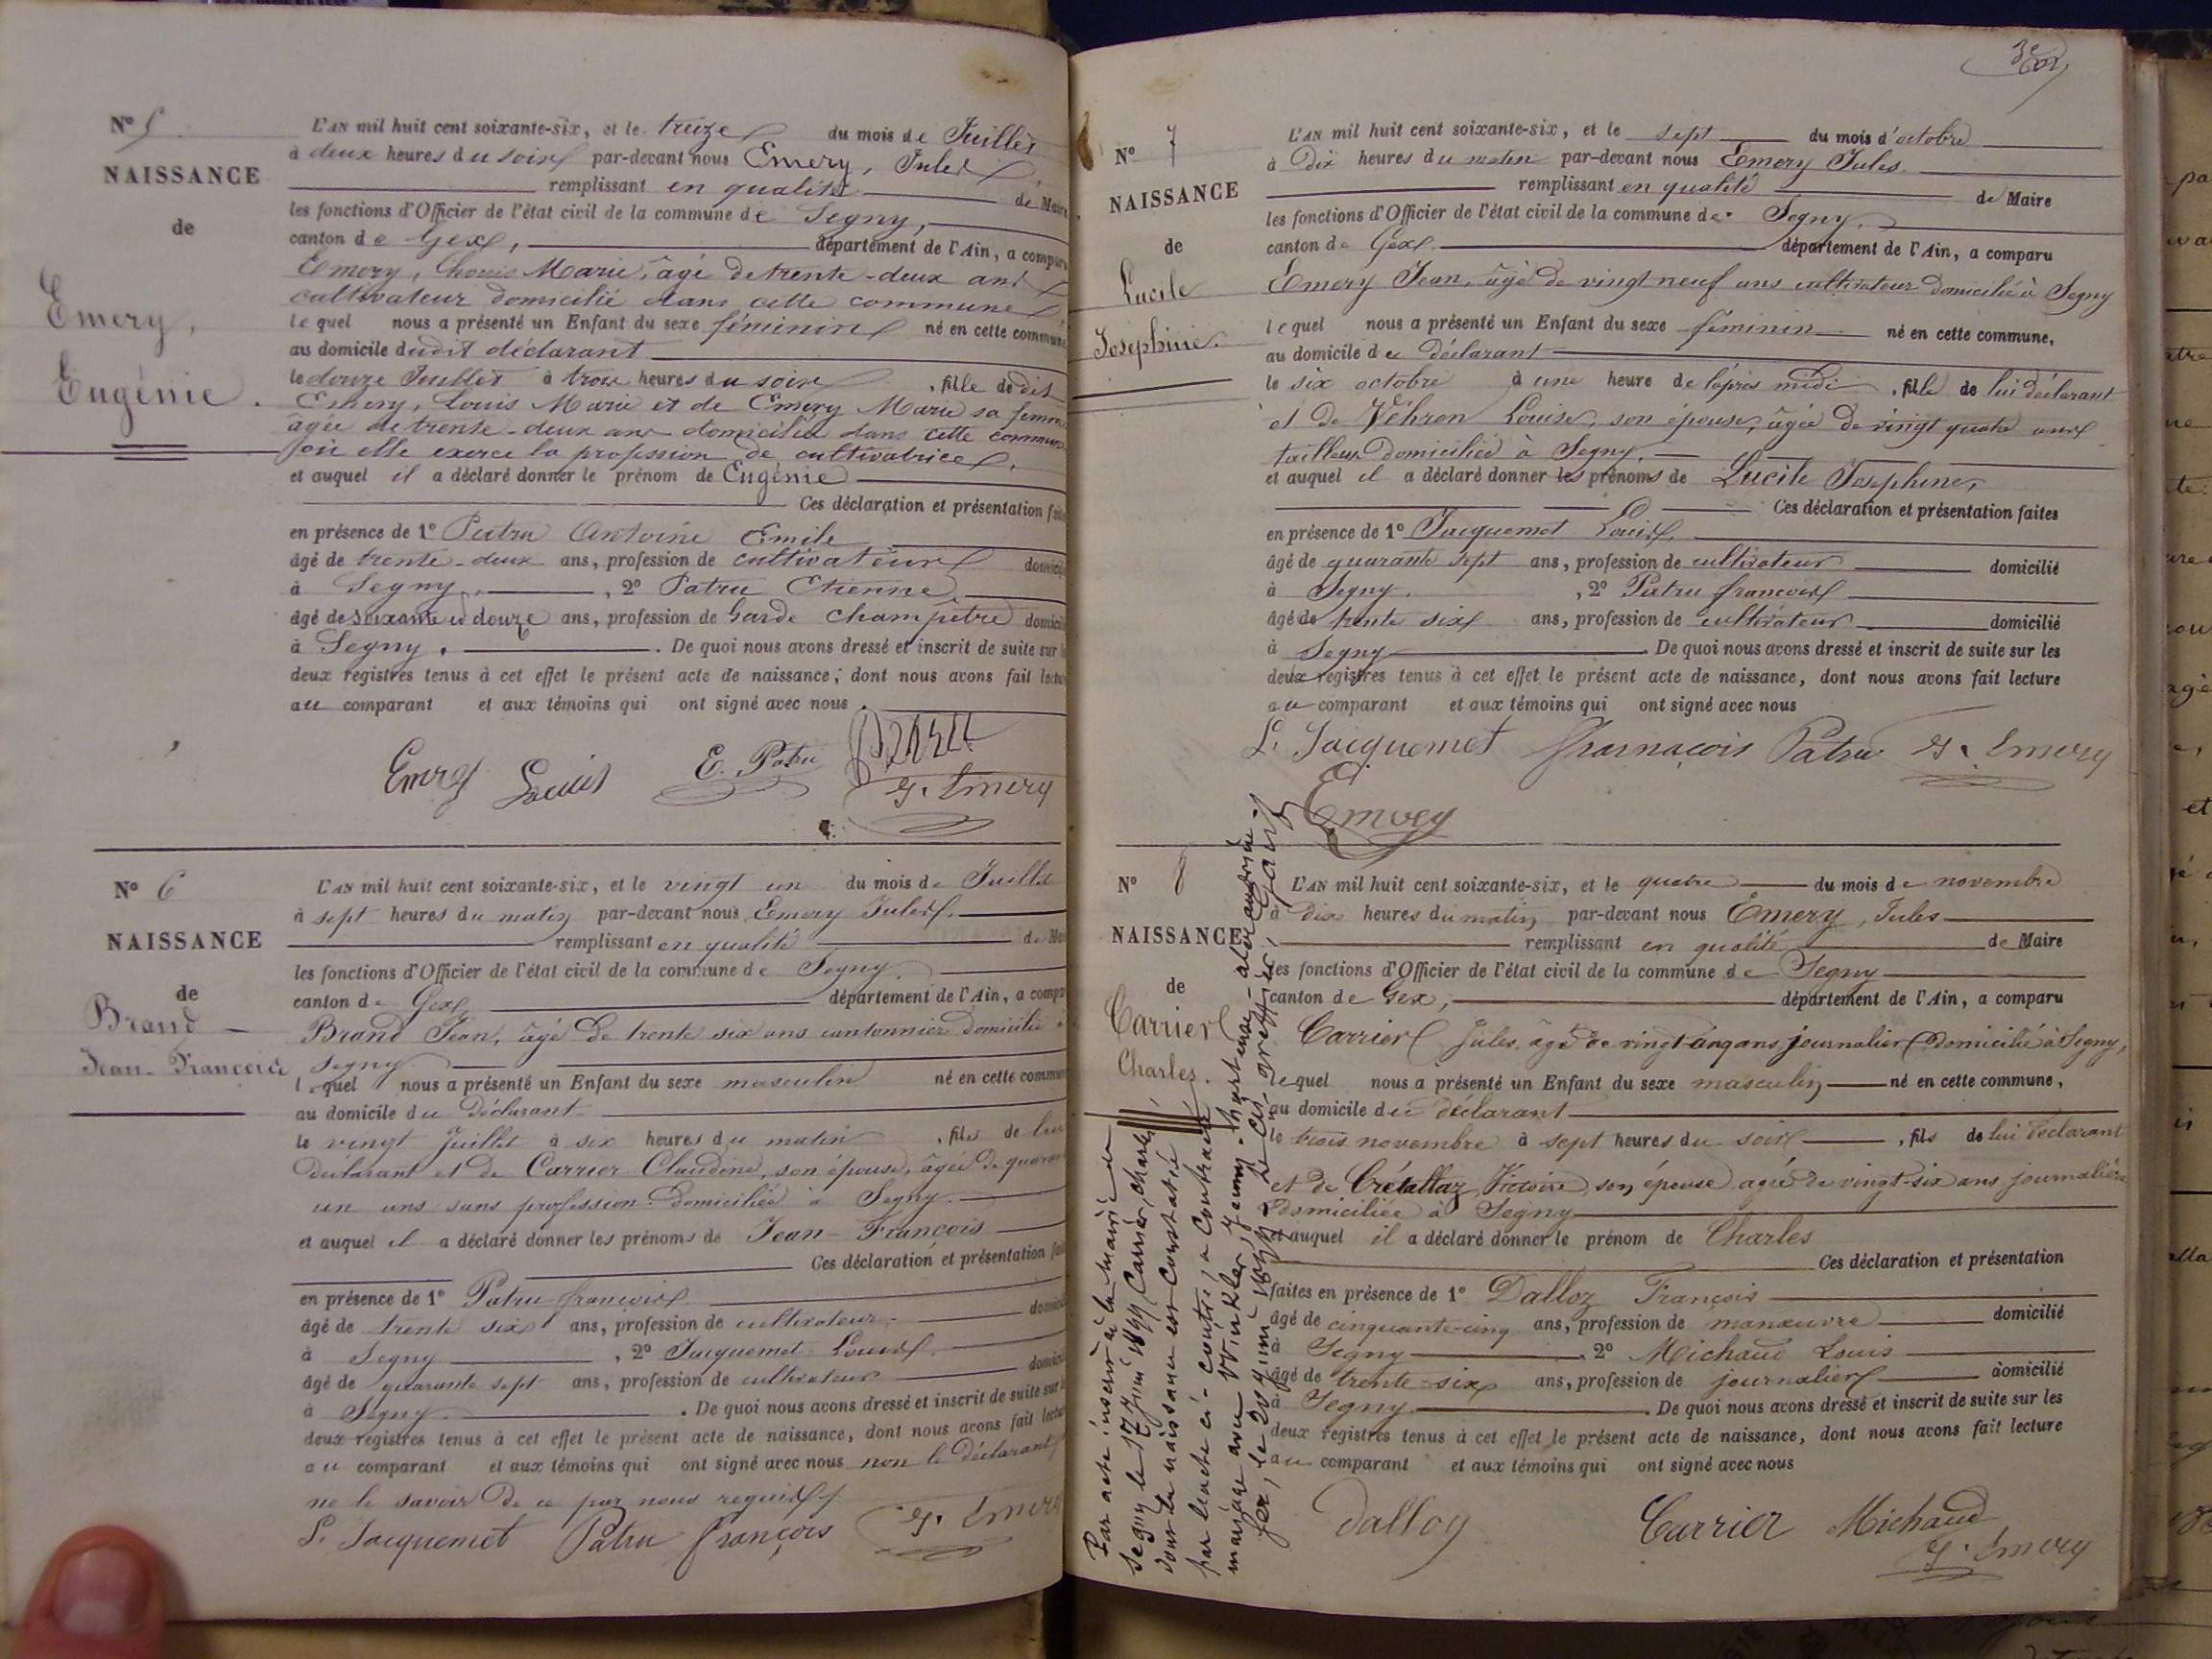 N° 5
NAISSANCE
de
Emery,
Eugénie.
L'AN mil huit cent soixante-six, et le treize du mois de Juillet
à deux heures du soir par-devant nous Emery, Jules
remplissant en qualité de Maire
les fonctions d'Officier de l'état civil de la commune de Segny,
canton de Gex, département de l'Ain, a comparu
Emery, Louis Marie, âgé de trente-deux ans
cultivateur domicilié dans cette commune
lequel nous a présenté un Enfant du sexe féminin né en cette commune
au domicile dudit déclarant
le douze Juillet à trois heures du soir, fille de dit
Emery, Louis Marie et de Emery Marie sa femme
âgée de trente-deux ans domiciliée dans cette commune
où elle exerce la profession de cultivatrice,
et auquel il a déclaré donner le prénom de Eugénie
Ces déclaration et présentation faites
en présence de 1° Patru Antoine Emile
âgé de trente-deux ans, profession de cultivateur domicilié
à Segny, 2° Patru Etienne,
âgé de soixante et douze ans, profession de Garde champêtre domicilié
à Segny. De quoi nous avons dressé et inscrit de suite sur les
deux registres tenus à cet effet le présent acte de naissance; dont nous avons fait lecture
au comparant et aux témoins qui ont signé avec nous.
Emery Louis E. Patru Patru
J. Emery
N° 6
NAISSANCE
de
Brand
Jean-François
L'AN mil huit cent soixante-six, et le vingt un du mois de Juillet
à sept heures du matin par-devant nous Emery Jules.
remplissant en qualité de Maire
les fonctions d'Officier de l'état civil de la commune de Segny.
canton de Gex, département de l'Ain, a comparu
Brand Jean, âgé de trente six ans cantonnier domicilié à
Segny.
lequel nous a présenté un Enfant du sexe masculin né en cette commune
au domicile du déclarant
le vingt Juillet à six heures du matin, fils de lui
déclarant et de Carrier Claudine, son épouse, âgée de quarante
un ans sans profession domiciliée à Segny.
et auquel il a déclaré donner les prénoms de Jean-François
Ces déclaration et présentation faites
en présence de 1° Patru françois
âgé de trente six ans, profession de cultivateur domicilié
à Segny, 2° Jacquemet Louis.
âgé de quarante sept ans, profession de cultivateur domicilié
à Segny. De quoi nous avons dressé et inscrit de suite sur les
deux registres tenus à cet effet le présent acte de naissance, dont nous avons fait lecture
au comparant et aux témoins qui ont signé avec nous non le déclarant
ne le savoir de ce par nous requis
L. Jacquemet Patru françois J. Emery
N° 7
NAISSANCE
de
Lucile
Josephine.
L'AN mil huit cent soixante-six, et le sept du mois d'octobre
à dix heures du matin par-devant nous Emery Jules.
remplissant en qualité de Maire
les fonctions d'Officier de l'état civil de la commune de Segny.
canton de Gex. département de l'Ain, a comparu
Emery Jean, âgé de vingt neuf ans cultivateur domicilié à Segny
lequel nous a présenté un Enfant du sexe féminin né en cette commune,
au domicile du déclarant
le six octobre à une heure de l'après midi, fille de lui déclarant
et de Véhron Louise, son épouse, âgée de vingt quatre ans
tailleuse domiciliée à Segny.
et auquel il a déclaré donner les prénoms de Lucile Josephine,
Ces déclaration et présentation faites
en présence de 1° Jacquemet Louis
âgé de quarante sept ans, profession de cultivateur domicilié
à Segny. , 2° Patru françois
âgé de trente six ans, profession de cultivateur domicilié
à Segny. De quoi nous avons dressé et inscrit de suite sur les
deux registres tenus à cet effet le présent acte de naissance, dont nous avons fait lecture
au comparant et aux témoins qui ont signé avec nous
L. Jacquemet françois Patru J. Emery
Emery
N° 8
NAISSANCE
de
Carrier
Charles.
L'AN mil huit cent soixante-six, et le quatre du mois de novembre
à dix heures du matin par-devant nous Emery, Jules
remplissant en qualité de Maire
les fonctions d'Officier de l'état civil de la commune de Segny
canton de Gex, département de l'Ain, a comparu
Carrier Jules, âgé de vingt cinq ans, journalier domicilié à Segny,
lequel nous a présenté un Enfant du sexe masculin né en cette commune,
au domicile du déclarant
le trois novembre à sept heures du soir, fils de lui déclarant
et de Crétallaz Victoire, son épouse, agée de vingt-six ans journalière
domiciliée à Segny
et auquel il a déclaré donner le prénom de Charles
Ces déclaration et présentation
faites en présence de 1° Dalloz François
âgé de cinquante-cinq ans, profession de manœuvre domicilié
à Segny, 2° Michaud Louis
âgé de trente-six ans, profession de journalier domicilié
à Segny. De quoi nous avons dressé et inscrit de suite sur les
deux registres tenus à cet effet le présent acte de naissance, dont nous avons fait lecture
au comparant et aux témoins qui ont signé avec nous
Dalloz Carrier Michaud
J. Emery
Par acte inséré à la mairie de
Segny le 17 Juin Carrier, Charles
dont la naissance est constatée
par l'acte ci-contre, a contracté
mariage avec Winkler, Jenny
Gex, le 20 Juin Le greffier